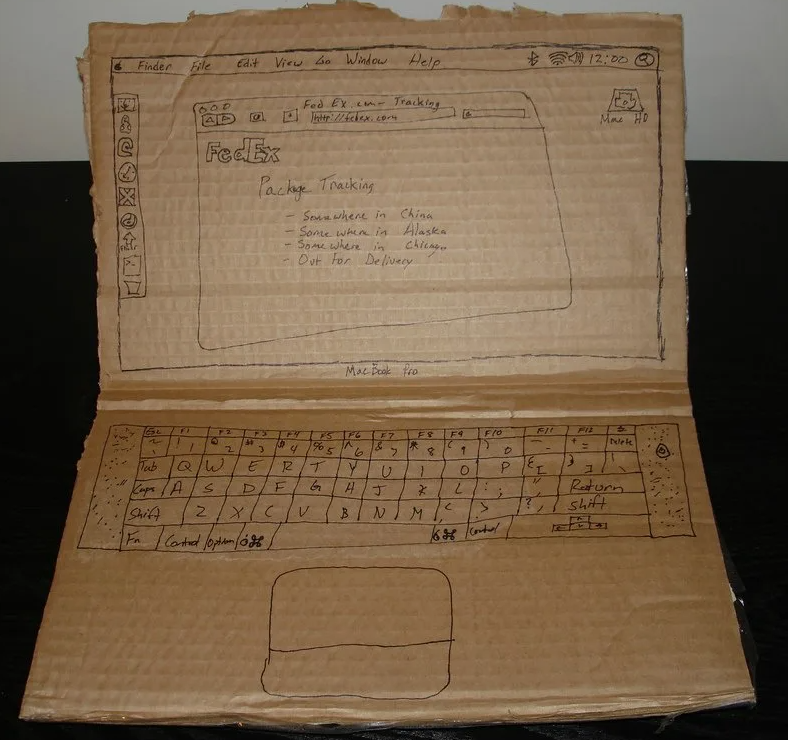 Finder File Edit View Go Window Help 12:00
Fed Ex.com - Tracking
http://fedex.com
Mac HD
FedEx
Package Tracking
- Somewhere in China
- Somewhere in Alaska
- Somewhere in Chicago
- Out For Delivery
MacBook Pro
Esc F1 F2 F3 F4 F5 F6 F7 F8 F9 F10 F11 F12
~ ! 1 @ 2 3 4 % 5 ^ 6 & 7 * 8 ( 9 ) 0 - + = Delete
Tab Q W E R T Y U I O P { [ } ] | \
Caps A S D F G H J K L : ; " ' Return
Shift Z X C V B N M < , > ? Shift
Fn Control Option ⌘ ⌘ Control